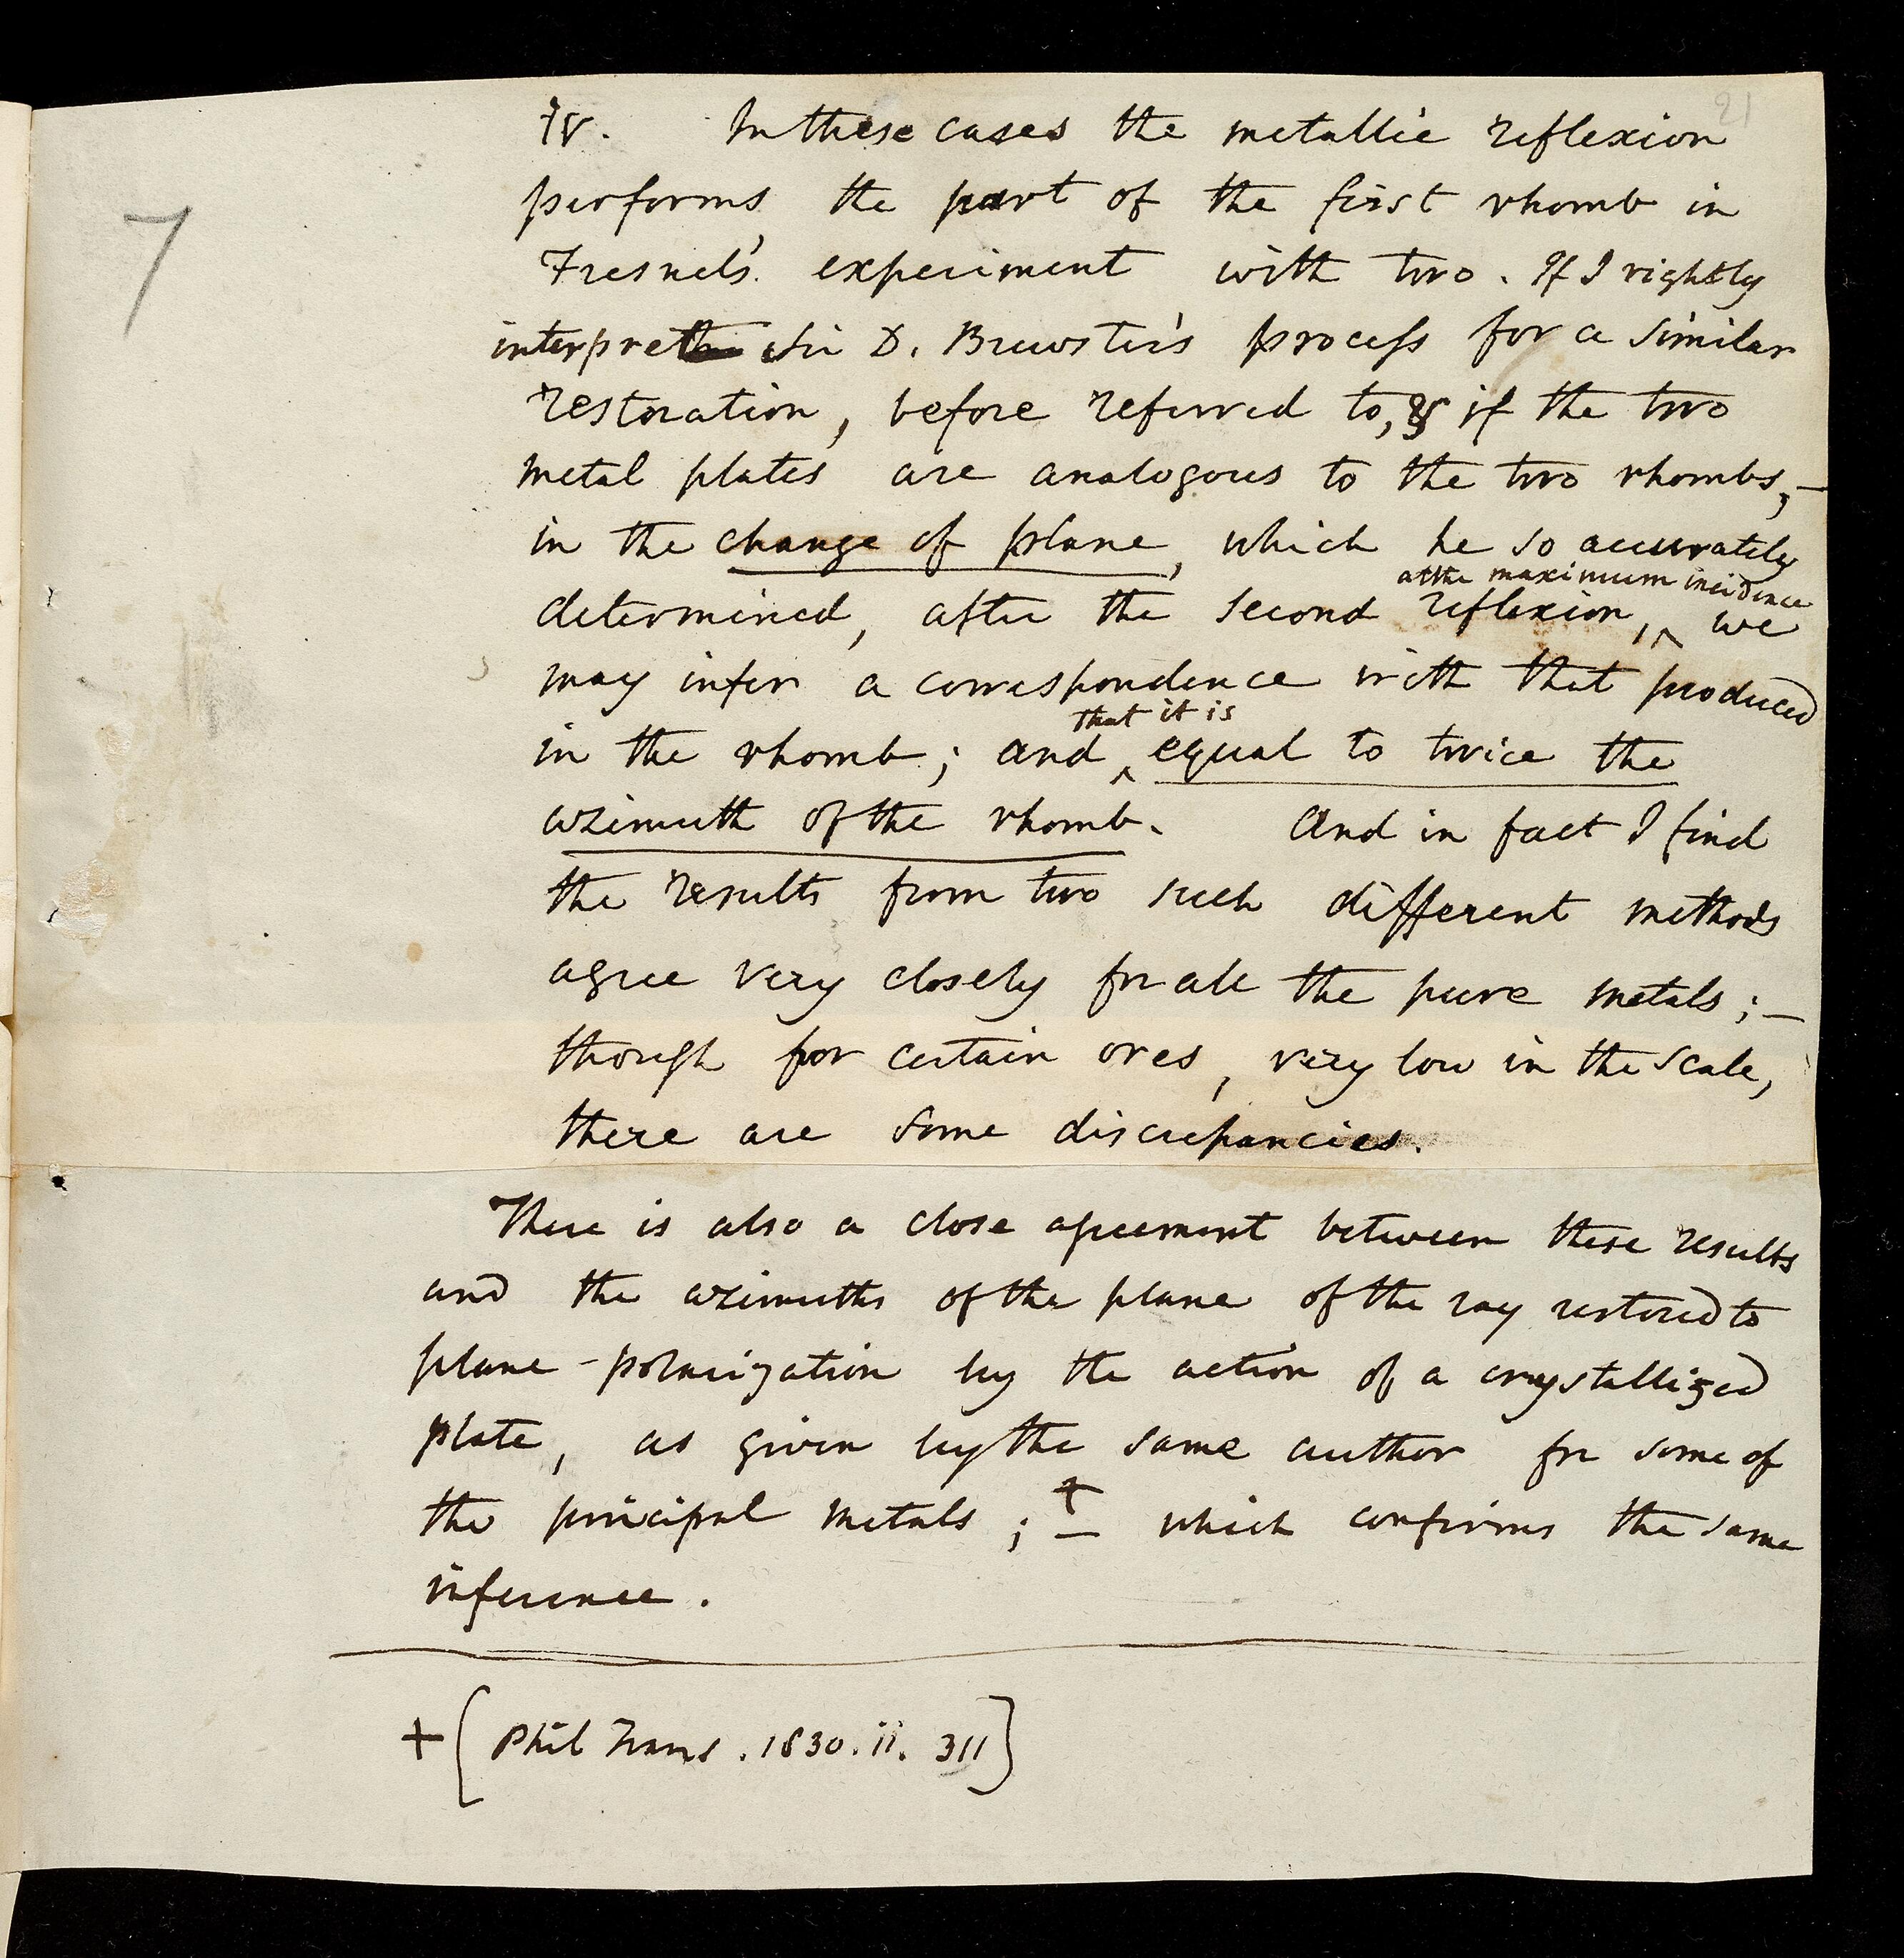 21
7
In these cases the metallic reflexion
performs the part of the first rhomb in
Fresnel's experiment with two. If I rightly
interpret Sir D. Brewster's process for a similar
restoration, before referred to, & if the two
metal plates are analogous to the two rhombs, –
in the change of plane, which he so accurately
at the maximum incidence
determined, after the second reflexion, ^ we
may infer a correspondence with that produced
that it is
in the rhomb; and ^ equal to twice the
azimuth of the rhomb. And in fact I find
the results from two such different methods
agree very closely for all the pure metals; –
though for certain ores, very low in the scale,
there are some discrepancies.
There is also a close agreement between these results
and the azimuths of the plane of the ray restored to
plane-polarization by the action of a crystallized
plate, as given by the same author for some of
the principal metals; + – which confirms the same
inference.
+ [Phil Trans. 1830. ii. 311]